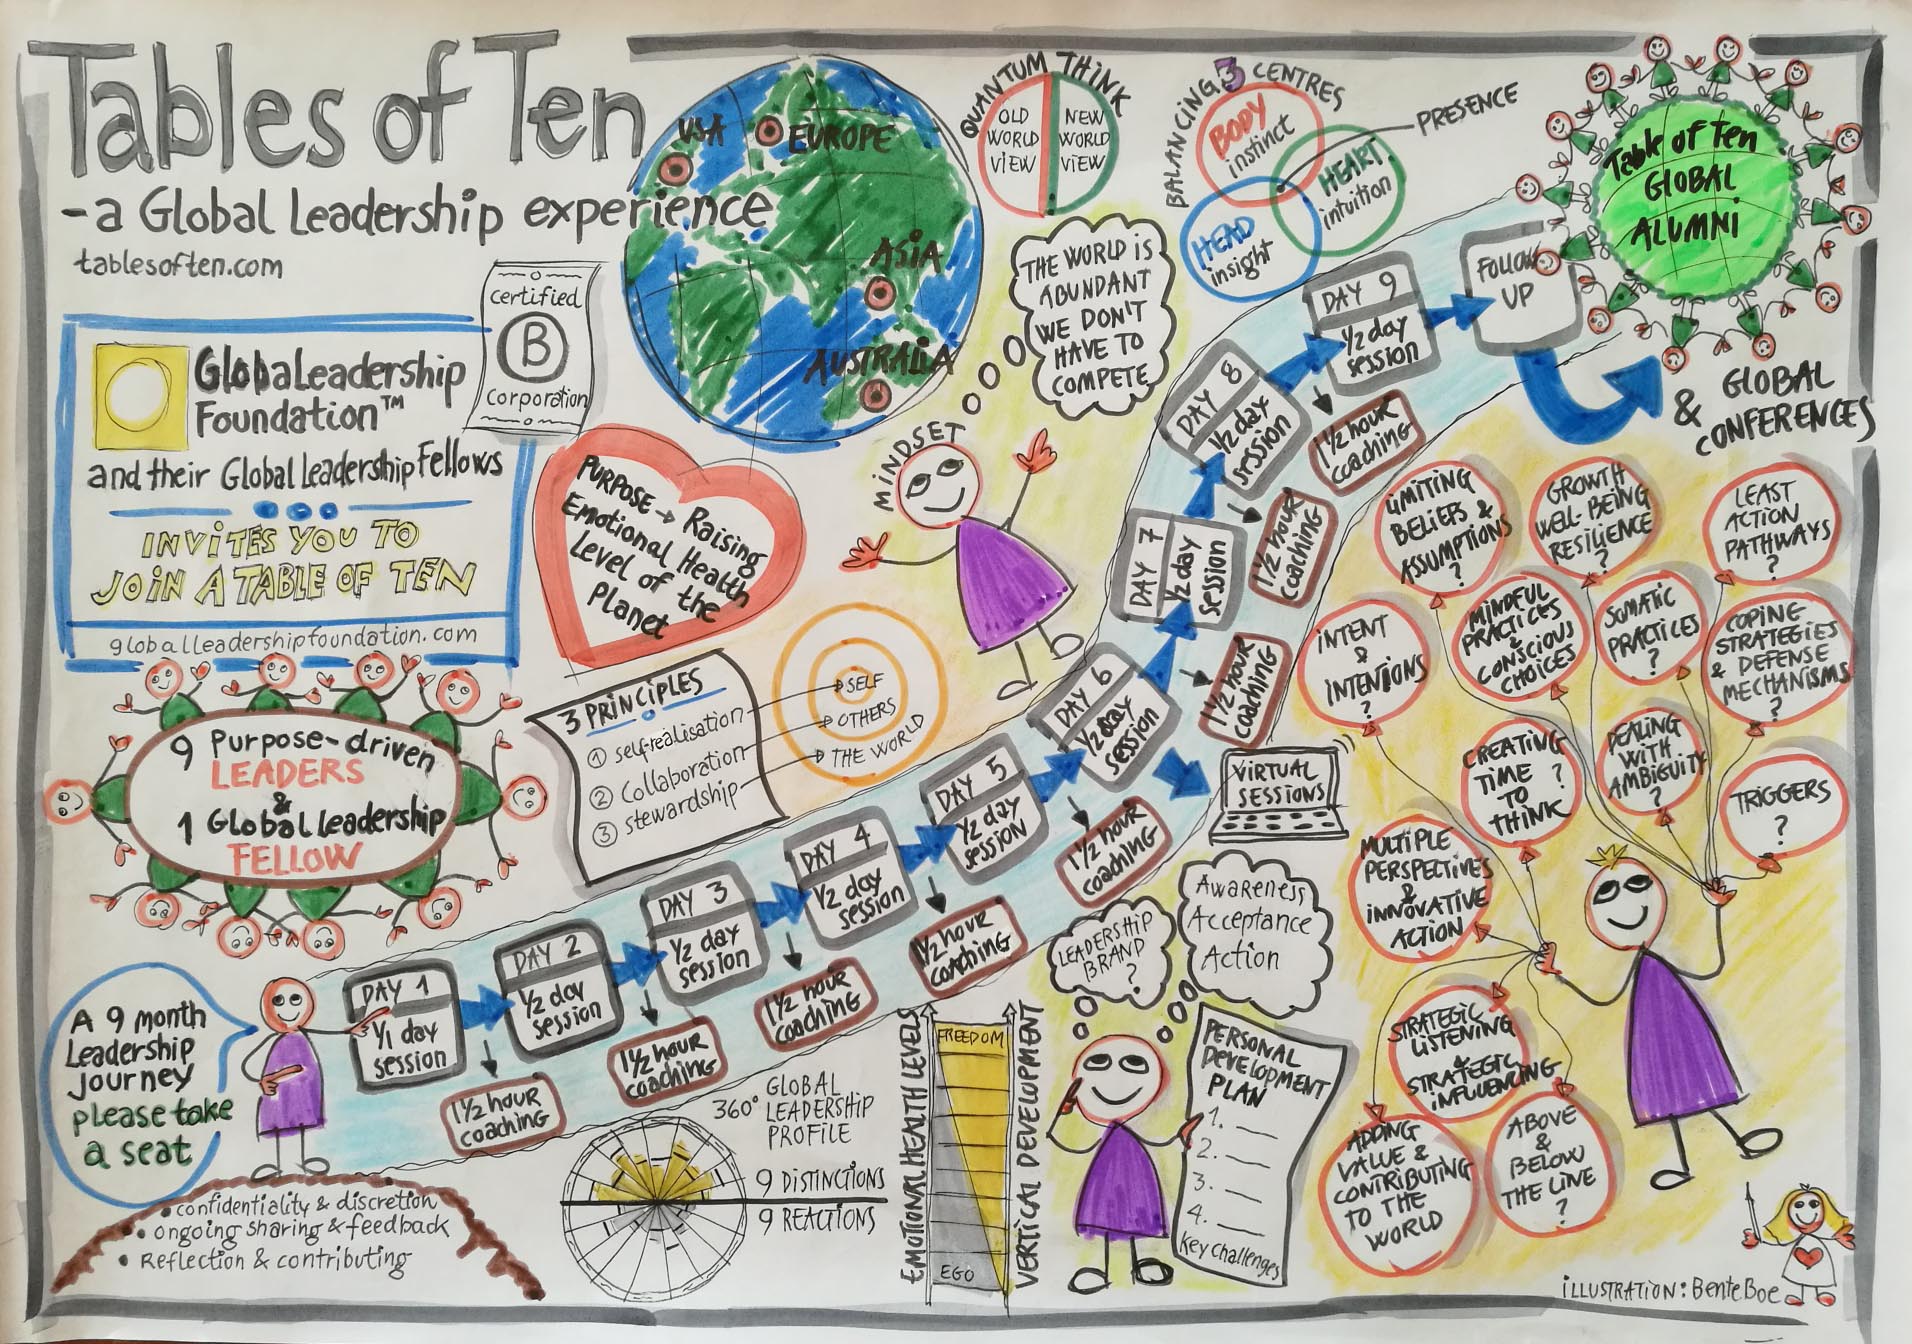 Tables of Ten
-a Global Leadership experience
tablesoften.com
certified
B
corporation
GlobaLeadership
Foundation™
and their Global Leadership Fellows
INVITES YOU TO
JOIN A TABLE OF TEN
globalleadershipfoundation.com
9 Purpose-driven
LEADERS
&
1 Global Leadership
FELLOW
A 9 month
Leadership
journey
please take
a seat
• confidentiality & discretion
• ongoing sharing & feedback
• Reflection & contributing
USA
EUROPE
ASIA
AUSTRALIA
PURPOSE → Raising
Emotional Health
Level of the
Planet
3 PRINCIPLES
① self-realisation
② Collaboration
③ stewardship
SELF
OTHERS
THE WORLD
QUANTUM THINK
OLD
WORLD
VIEW
NEW
WORLD
VIEW
BALANCING 3 CENTRES
BODY
instinct
HEART
intuition
HEAD
insight
PRESENCE
THE WORLD IS
ABUNDANT
WE DON'T
HAVE TO
COMPETE
MINDSET
DAY 1
1/1 day
session
1 1/2 hour
coaching
DAY 2
1/2 day
session
1 1/2 hour
coaching
DAY 3
1/2 day
session
1 1/2 hour
coaching
DAY 4
1/2 day
session
1 1/2 hour
coaching
DAY 5
1/2 day
session
1 1/2 hour
coaching
DAY 6
1/2 day
session
1 1/2 hour
coaching
DAY 7
1/2 day
session
1 1/2 hour
coaching
DAY 8
1/2 day
session
1 1/2 hour
coaching
DAY 9
1/2 day
session
FOLLOW
UP
Table of Ten
GLOBAL
ALUMNI
& GLOBAL
CONFERENCES
VIRTUAL
SESSIONS
360° GLOBAL
LEADERSHIP
PROFILE
9 DISTINCTIONS
9 REACTIONS
EMOTIONAL HEALTH LEVELS
FREEDOM
EGO
VERTICAL DEVELOPMENT
LEADERSHIP
BRAND
?
Awareness
Acceptance
Action
PERSONAL
DEVELOPMENT
PLAN
1.
2.
3.
4.
Key challenges
LIMITING
BELIEFS &
ASSUMPTIONS
?
GROWTH
WELL-BEING
RESILIENCE
?
LEAST
ACTION
PATHWAYS
?
INTENT
&
INTENTIONS
?
MINDFUL
PRACTICES
&
CONSCIOUS
CHOICES
SOMATIC
PRACTICES
?
COPING
STRATEGIES
& DEFENSE
MECHANISMS
?
CREATING
TIME ?
TO
THINK
DEALING
WITH
AMBIGUITY
?
TRIGGERS
?
MULTIPLE
PERSPECTIVES
&
INNOVATIVE
ACTION
STRATEGIC
LISTENING
&
STRATEGIC
INFLUENCING
ADDING
VALUE &
CONTRIBUTING
TO THE
WORLD
ABOVE
&
BELOW
THE LINE
?
ILLUSTRATION: Bente Boe